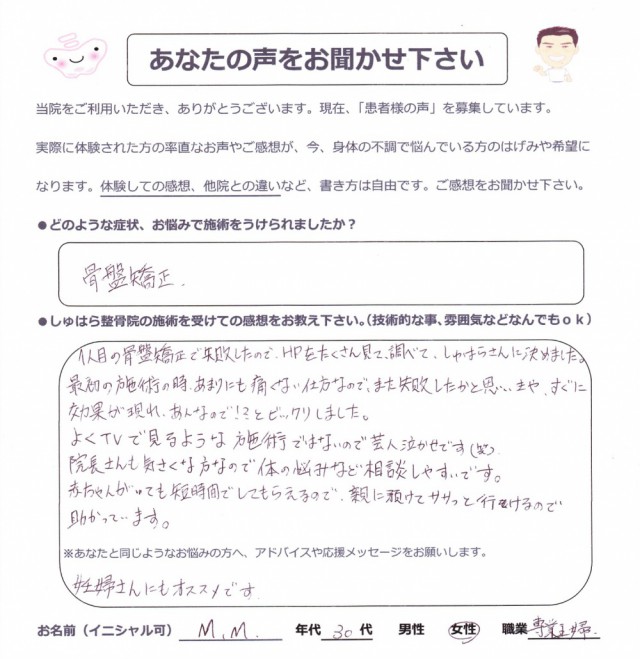 あなたの声をお聞かせ下さい
当院をご利用いただき、ありがとうございます。現在、「患者様の声」を募集しています。
実際に体験された方の率直なお声やご感想が、今、身体の不調で悩んでいる方のはげみや希望に
なります。体験しての感想、他院との違いなど、書き方は自由です。ご感想をお聞かせ下さい。
●どのような症状、お悩みで施術をうけられましたか？
骨盤矯正.
●しゅはら整骨院の施術を受けての感想をお教え下さい。（技術的な事、雰囲気などなんでもｏｋ）
1人目の骨盤矯正で失敗したので、HPをたくさん見て、調べて、しゅはらさんに決めました。
最初の施術の時、あまりにも痛くない仕方なので、また失敗したかと思いいきや、すぐに
効果が現れ、あんなので!?とビックリしました。
よくTVで見るような施術ではないので芸人泣かせです(笑)
院長さんも気さくな方なので体の悩みなど相談しやすいです。
赤ちゃんがいても短時間でしてもらえるので、親に預けてササッと行けるので
助かっています。
※あなたと同じようなお悩みの方へ、アドバイスや応援メッセージをお願いします。
妊婦さんにもオススメです
お名前（イニシャル可） M.M. 年代 30 代 男性 女性 職業 専業主婦.